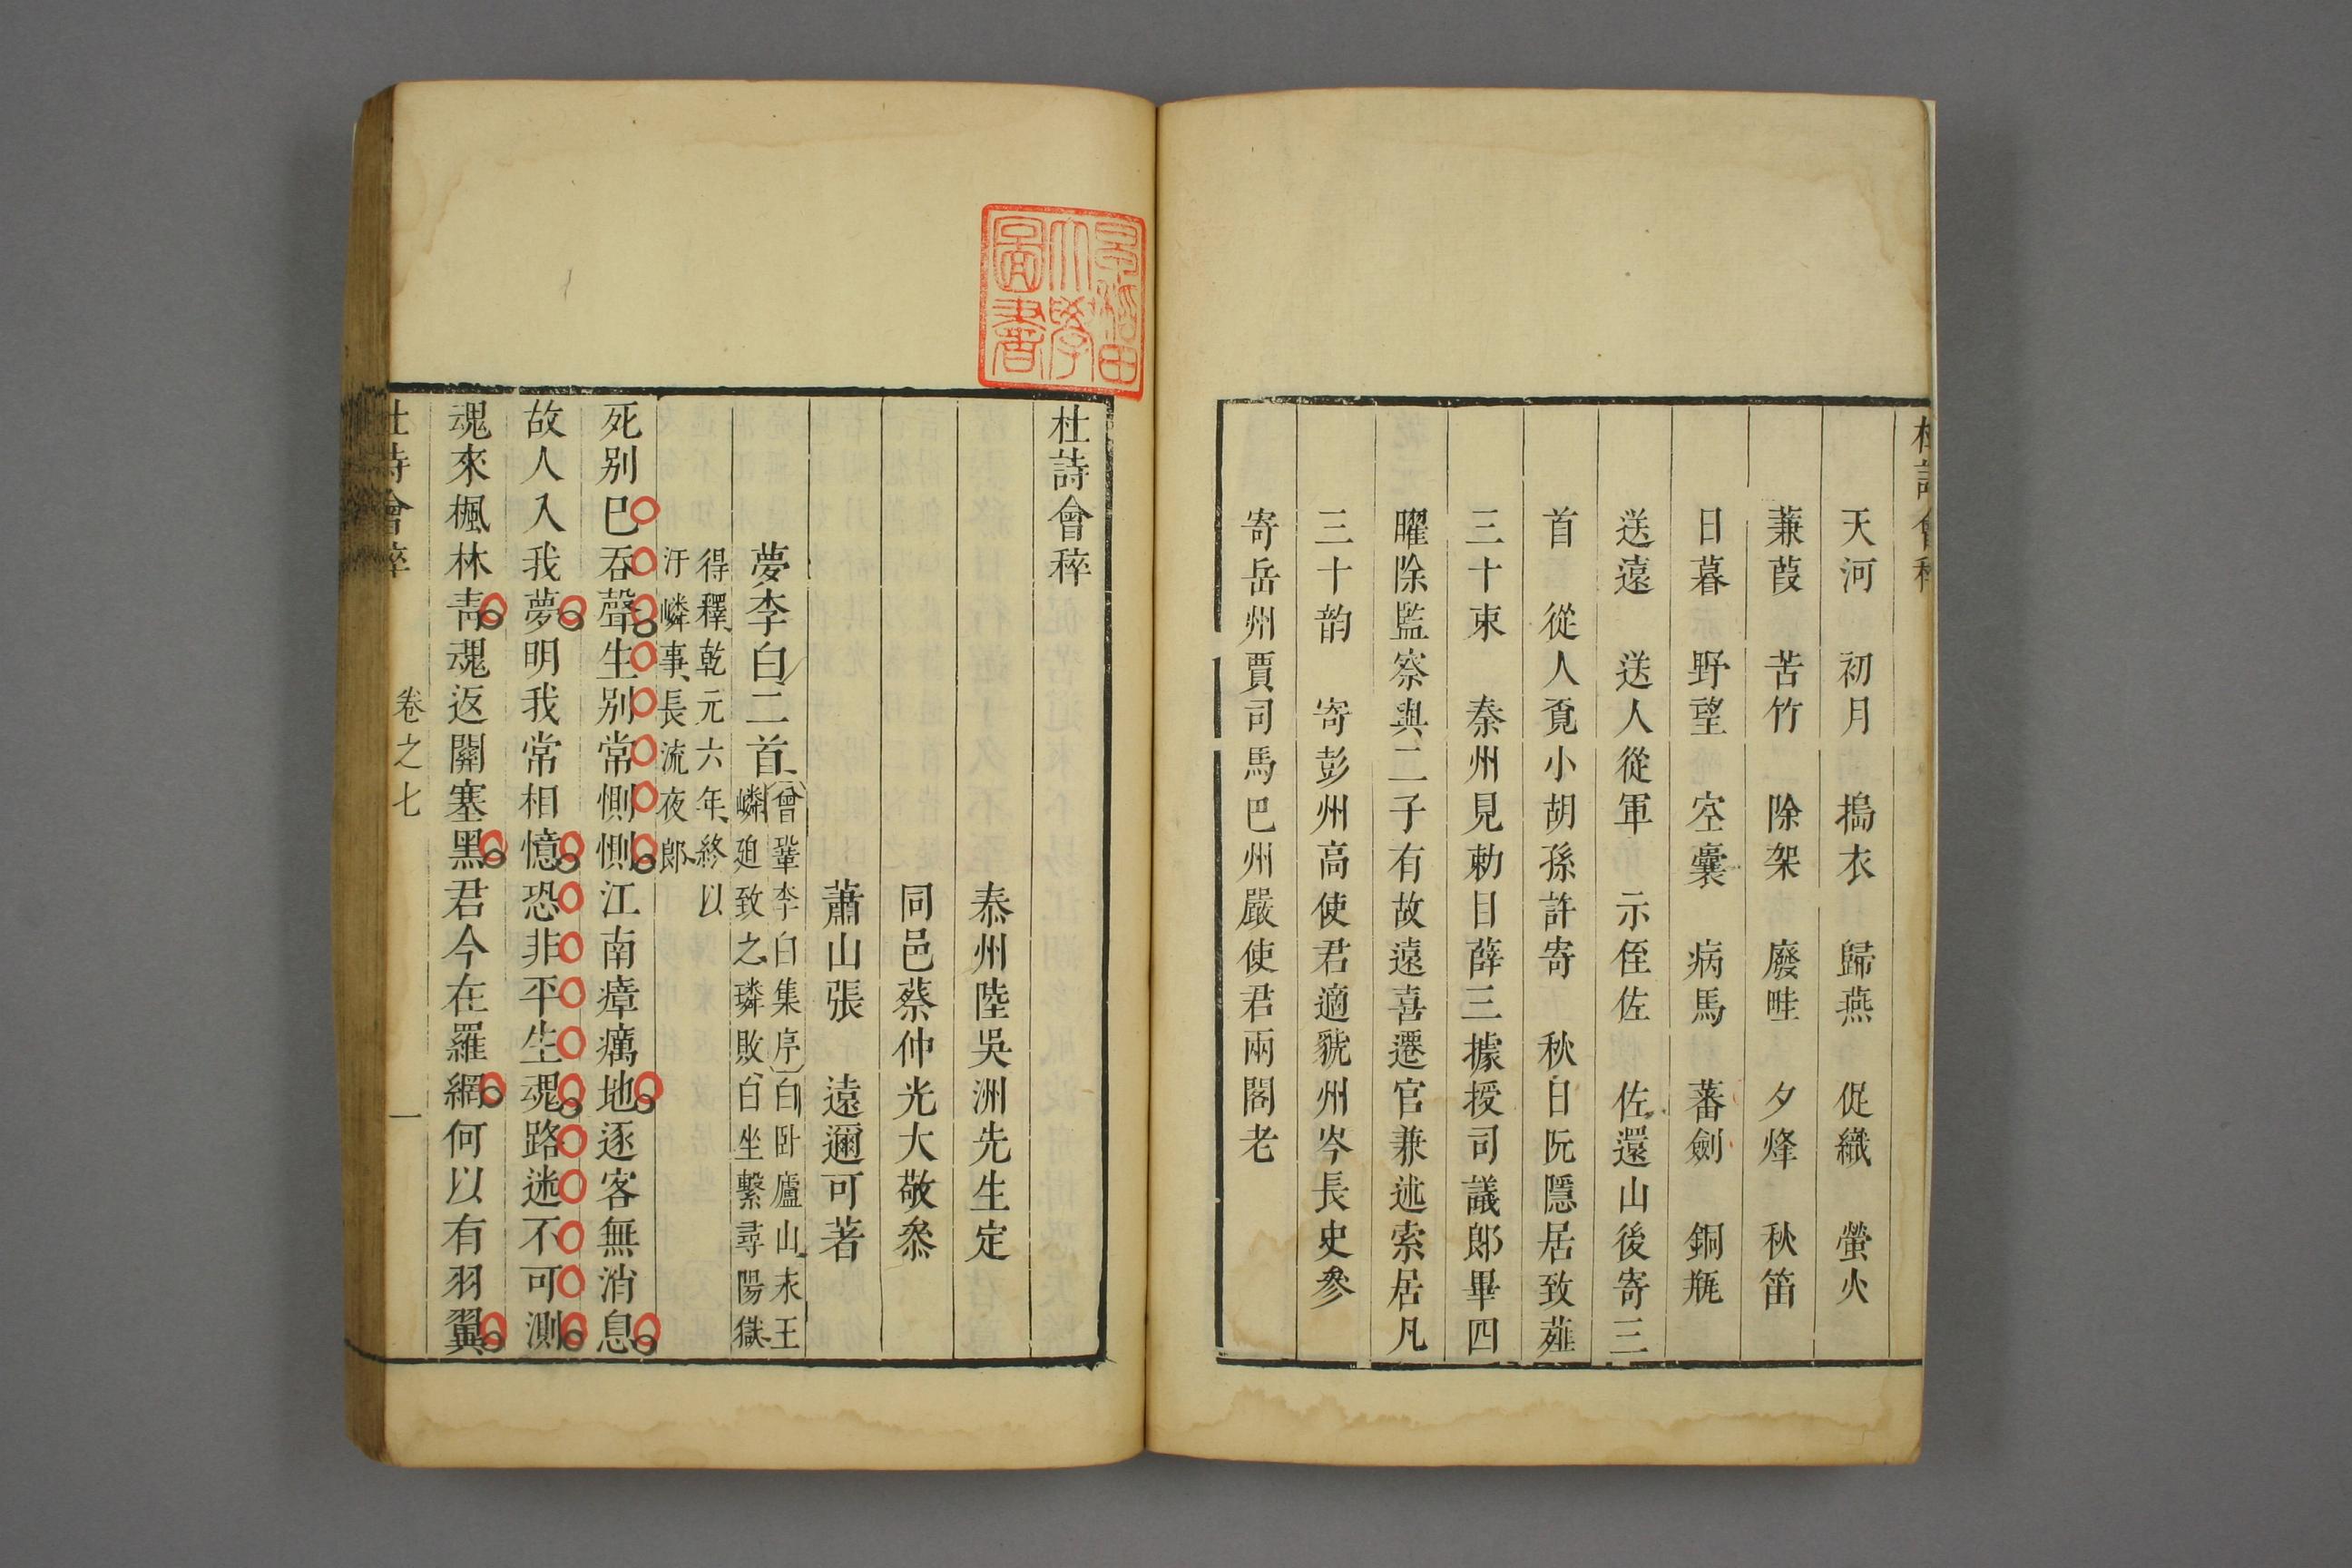 杜詩會稡
天河 初月 搗衣 歸燕 促織 螢火
蒹葭 苦竹 除架 廢畦 夕烽 秋笛
日暮 野望 空囊 病馬 蕃劍 銅甁
送遠 送人從軍 示侄佐 佐還山後寄三
首 從人覔小胡孫許寄 秋日阮隱居致薤
三十束 秦州見勅目薛三據授司議郎畢四
曜除監察與二子有故遠喜遷官兼述索居凡
三十韵 寄彭州高使君適虢州岑長史參
寄岳州賈司馬巴州嚴使君兩閣老
早稻田大學圖書
杜詩會稡
泰州陸吳洲先生定
同邑蔡仲光大敬叅
蕭山張 遠邇可著
夢李白二首
曾鞏李白集序白卧廬山末王
嶙廹致之璘敗白坐繫尋陽獄
得釋乾元六年終以
汙嶙事長流夜郎
死別已吞聲生別常惻惻江南瘴癘地逐客無消息
故人入我夢明我常相憶恐非平生魂路迷不可測
魂來楓林靑魂返關塞黑君今在羅網何以有羽翼
杜詩會稡 卷之七 一